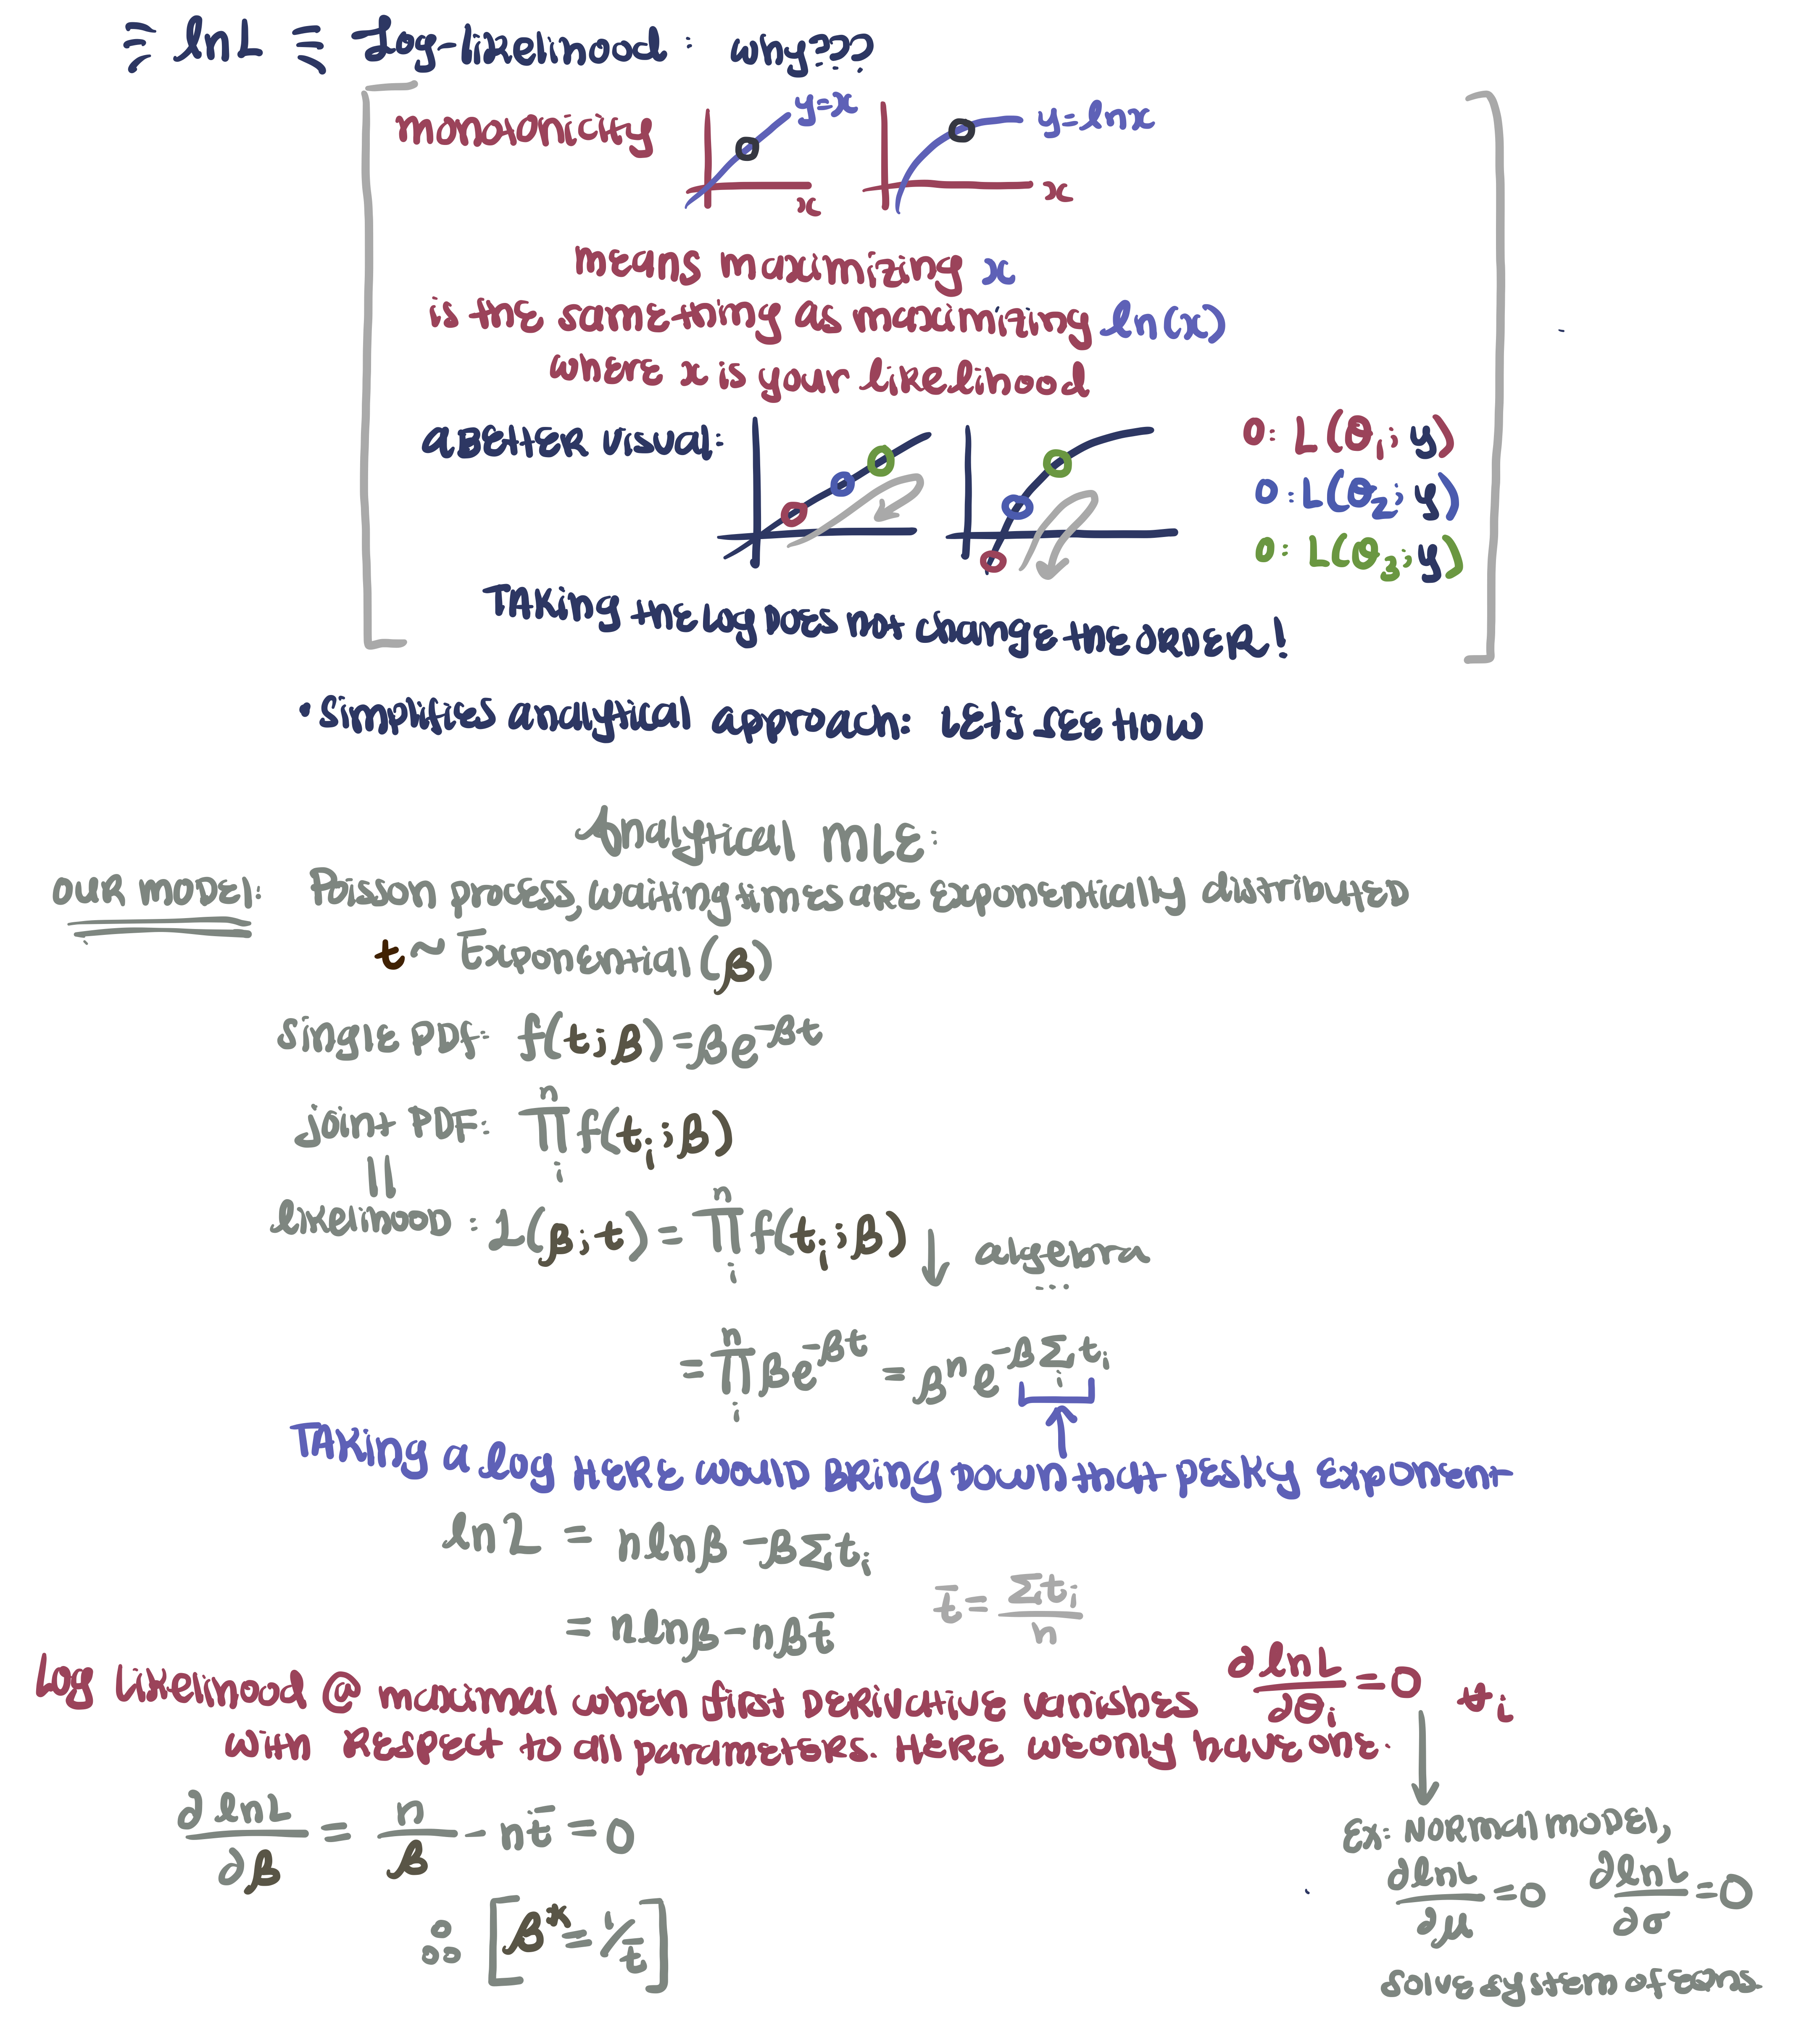 lnL Log-likelihood: why???
monotonicity y=x y=lnx
x x
means maximizing x
is the same thing as maximizing ln(x)
where x is your likelihood
a better visual:
O: L(θ₁; y)
O: L(θ₂; y)
O: L(θ₃; y)
Taking the log does not change the order!
• simplifies analytical approach: let's see how
Analytical MLE:
our model: Poisson process, waiting times are exponentially distributed
t ~ Exponential(β)
single PDF: f(t; β) = βe^{-βt}
joint PDF: ∏_i^n f(t_i; β)
||
likelihood: L(β; t) = ∏_i^n f(t_i; β) ↓ algebra ...
= ∏_i^n βe^{-βt} = β^n e^{-β Σ_i t_i}
Taking a log here would bring down that pesky exponent
lnL = nlnβ - βΣt_i
= nlnβ - nβt̄ t̄ = Σt_i / n
Log likelihood @ maximal when first derivative vanishes ∂lnL/∂θ_i = 0 ∀i
with respect to all parameters. Here we only have one.
∂lnL/∂β = n/β - nt̄ = 0
∴ [β* = 1/t̄]
Ex: Normal model,
∂lnL/∂μ = 0 ∂lnL/∂σ = 0
solve system of eqns.